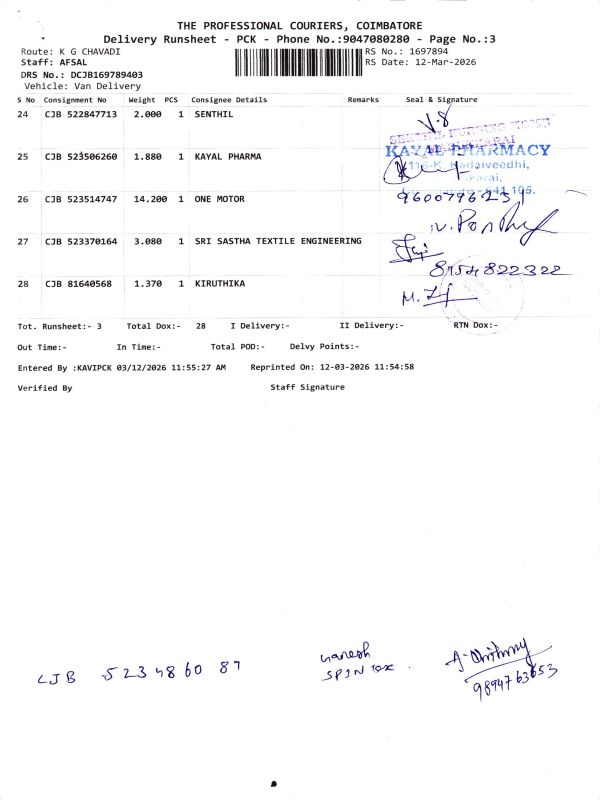 THE PROFESSIONAL COURIERS, COIMBATORE
Delivery Runsheet - PCK - Phone No.:9047080280 - Page No.:3
Route: K G CHAVADI RS No.: 1697894
Staff: AFSAL RS Date: 12-Mar-2026
DRS No.: DCJB169789403
Vehicle: Van Delivery
S No Consignment No Weight PCS Consignee Details Remarks Seal & Signature
24 CJB 522847713 2.000 1 SENTHIL
25 CJB 523506260 1.880 1 KAYAL PHARMA
KAYAL PHARMACY
Kadaiveedhi,
641 105.
26 CJB 523514747 14.200 1 ONE MOTOR
27 CJB 523370164 3.080 1 SRI SASTHA TEXTILE ENGINEERING
8754822322
28 CJB 81640568 1.370 1 KIRUTHIKA
Tot. Runsheet:- 3 Total Dox:- 28 I Delivery:- II Delivery:- RTN Dox:-
Out Time:- In Time:- Total POD:- Delvy Points:-
Entered By :KAVIPCK 03/12/2026 11:55:27 AM Reprinted On: 12-03-2026 11:54:58
Verified By Staff Signature
CJB 523486087
SPINTEX
9894763653